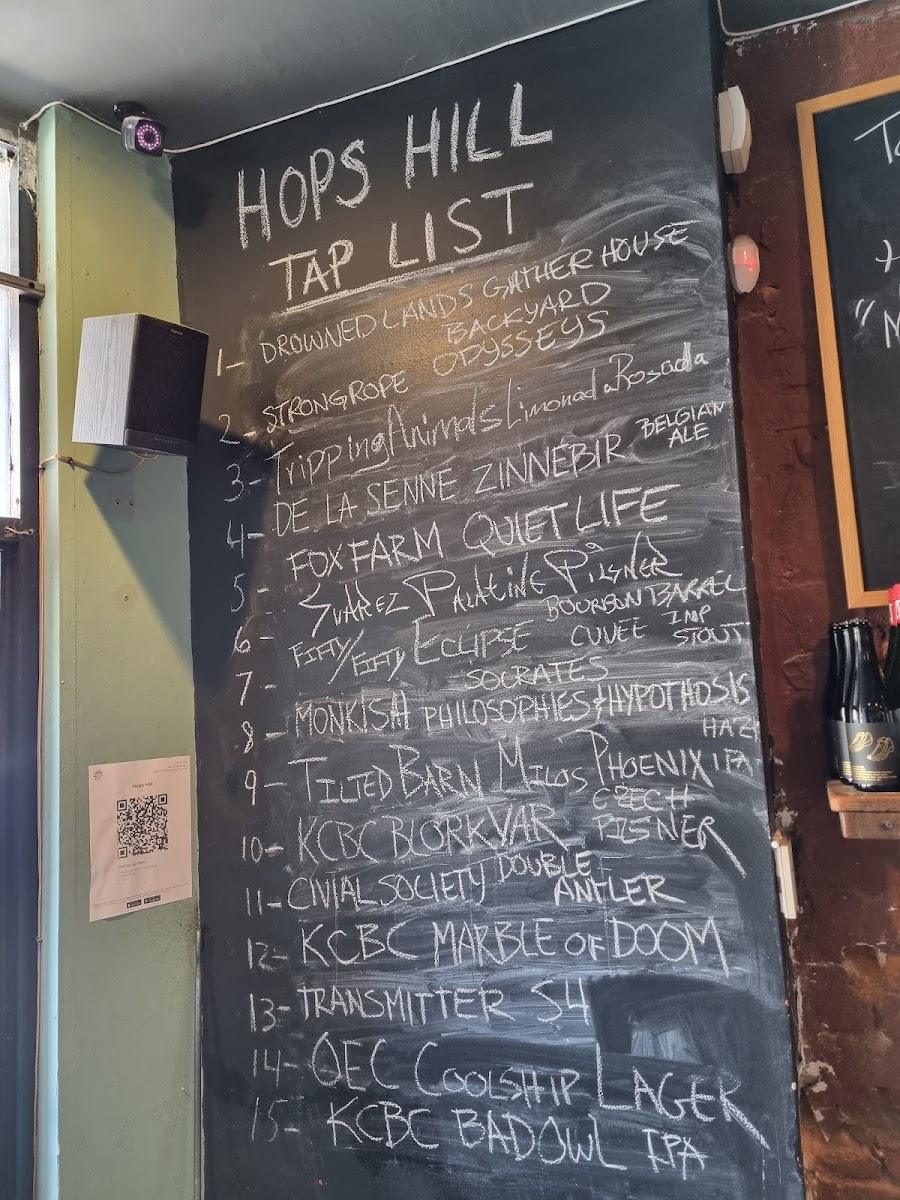 HOPS HILL
TAP LIST
1- DROWNED LANDS GATHER HOUSE
2- STRONG ROPE BACKYARD ODYSSEYS
3- Tripping Animals Limonada Rosada
4- DE LA SENNE ZINNEBIR BELGIAN ALE
5- FOX FARM QUIET LIFE
6- SUAREZ PALATINE PILSNER
7- FIFTY/FIFTY ECLIPSE BOURBON BARREL CUVEE IMP STOUT
8- MONKISH SOCRATES PHILOSOPHIES & HYPOTHOSIS
9- TILTED BARN MILOS PHOENIX HAZY IPA
10- KCBC BLORKVAR CZECH PILSNER
11- CIVIAL SOCIETY DOUBLE ANTLER
12- KCBC MARBLE OF DOOM
13- TRANSMITTER S4
14- OEC COOLSHIP LAGER
15- KCBC BAD OWL IPA
Hops Hill